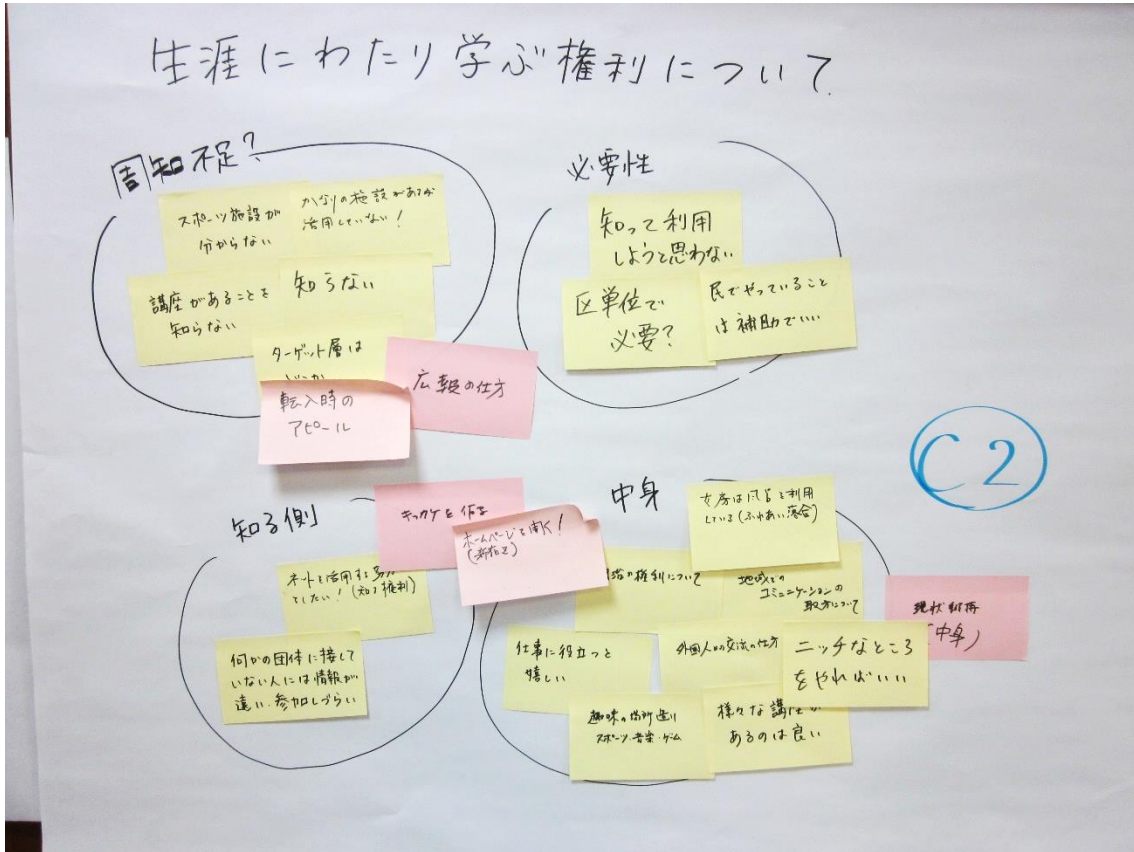 生涯にわたり学ぶ権利について
周知不足?
スポーツ施設が
分からない
かなりの施設があるが
活用していない!
講座があることを
知らない
知らない
ターゲット層は
転入時の
アピール
広報の仕方
必要性
知って利用
しようと思わない
区単位で
必要?
民でやっていること
は補助でいい
C2
知る側
キッカケを作る
ネットを活用する
としたい!(知る権利)
何かの団体に接して
いない人には情報が
遠い、参加しづらい
中身
ホームページを開く!
(新宿区)
女房は
利用
している(ふれあい落合)
権利について
地域との
コミュニケーションの
取方について
現状
(中身)
仕事に役立つと
嬉しい
外国人との交流の仕方
ニッチなところ
をやればいい
趣味の場所
スポーツ・音楽・ゲーム
様々な講座が
あるのは良い